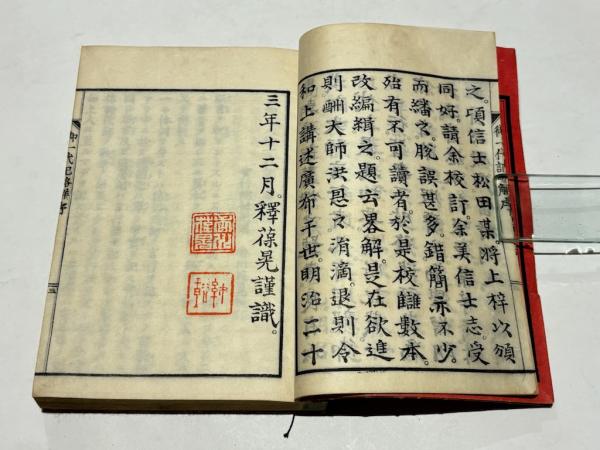 之。頃信士松田某。將上梓以頒
同好。請余校訂。余美信士志。受
而繙之。脫誤甚多。錯簡亦不少。
殆有不可讀者。於是校讎數本。
改編緝之。題云畧解。是在欲進
則酬大師洪恩之涓滴。退則令
和上講述廣布于世。明治二十
三年十二月。釋葆晃謹識。